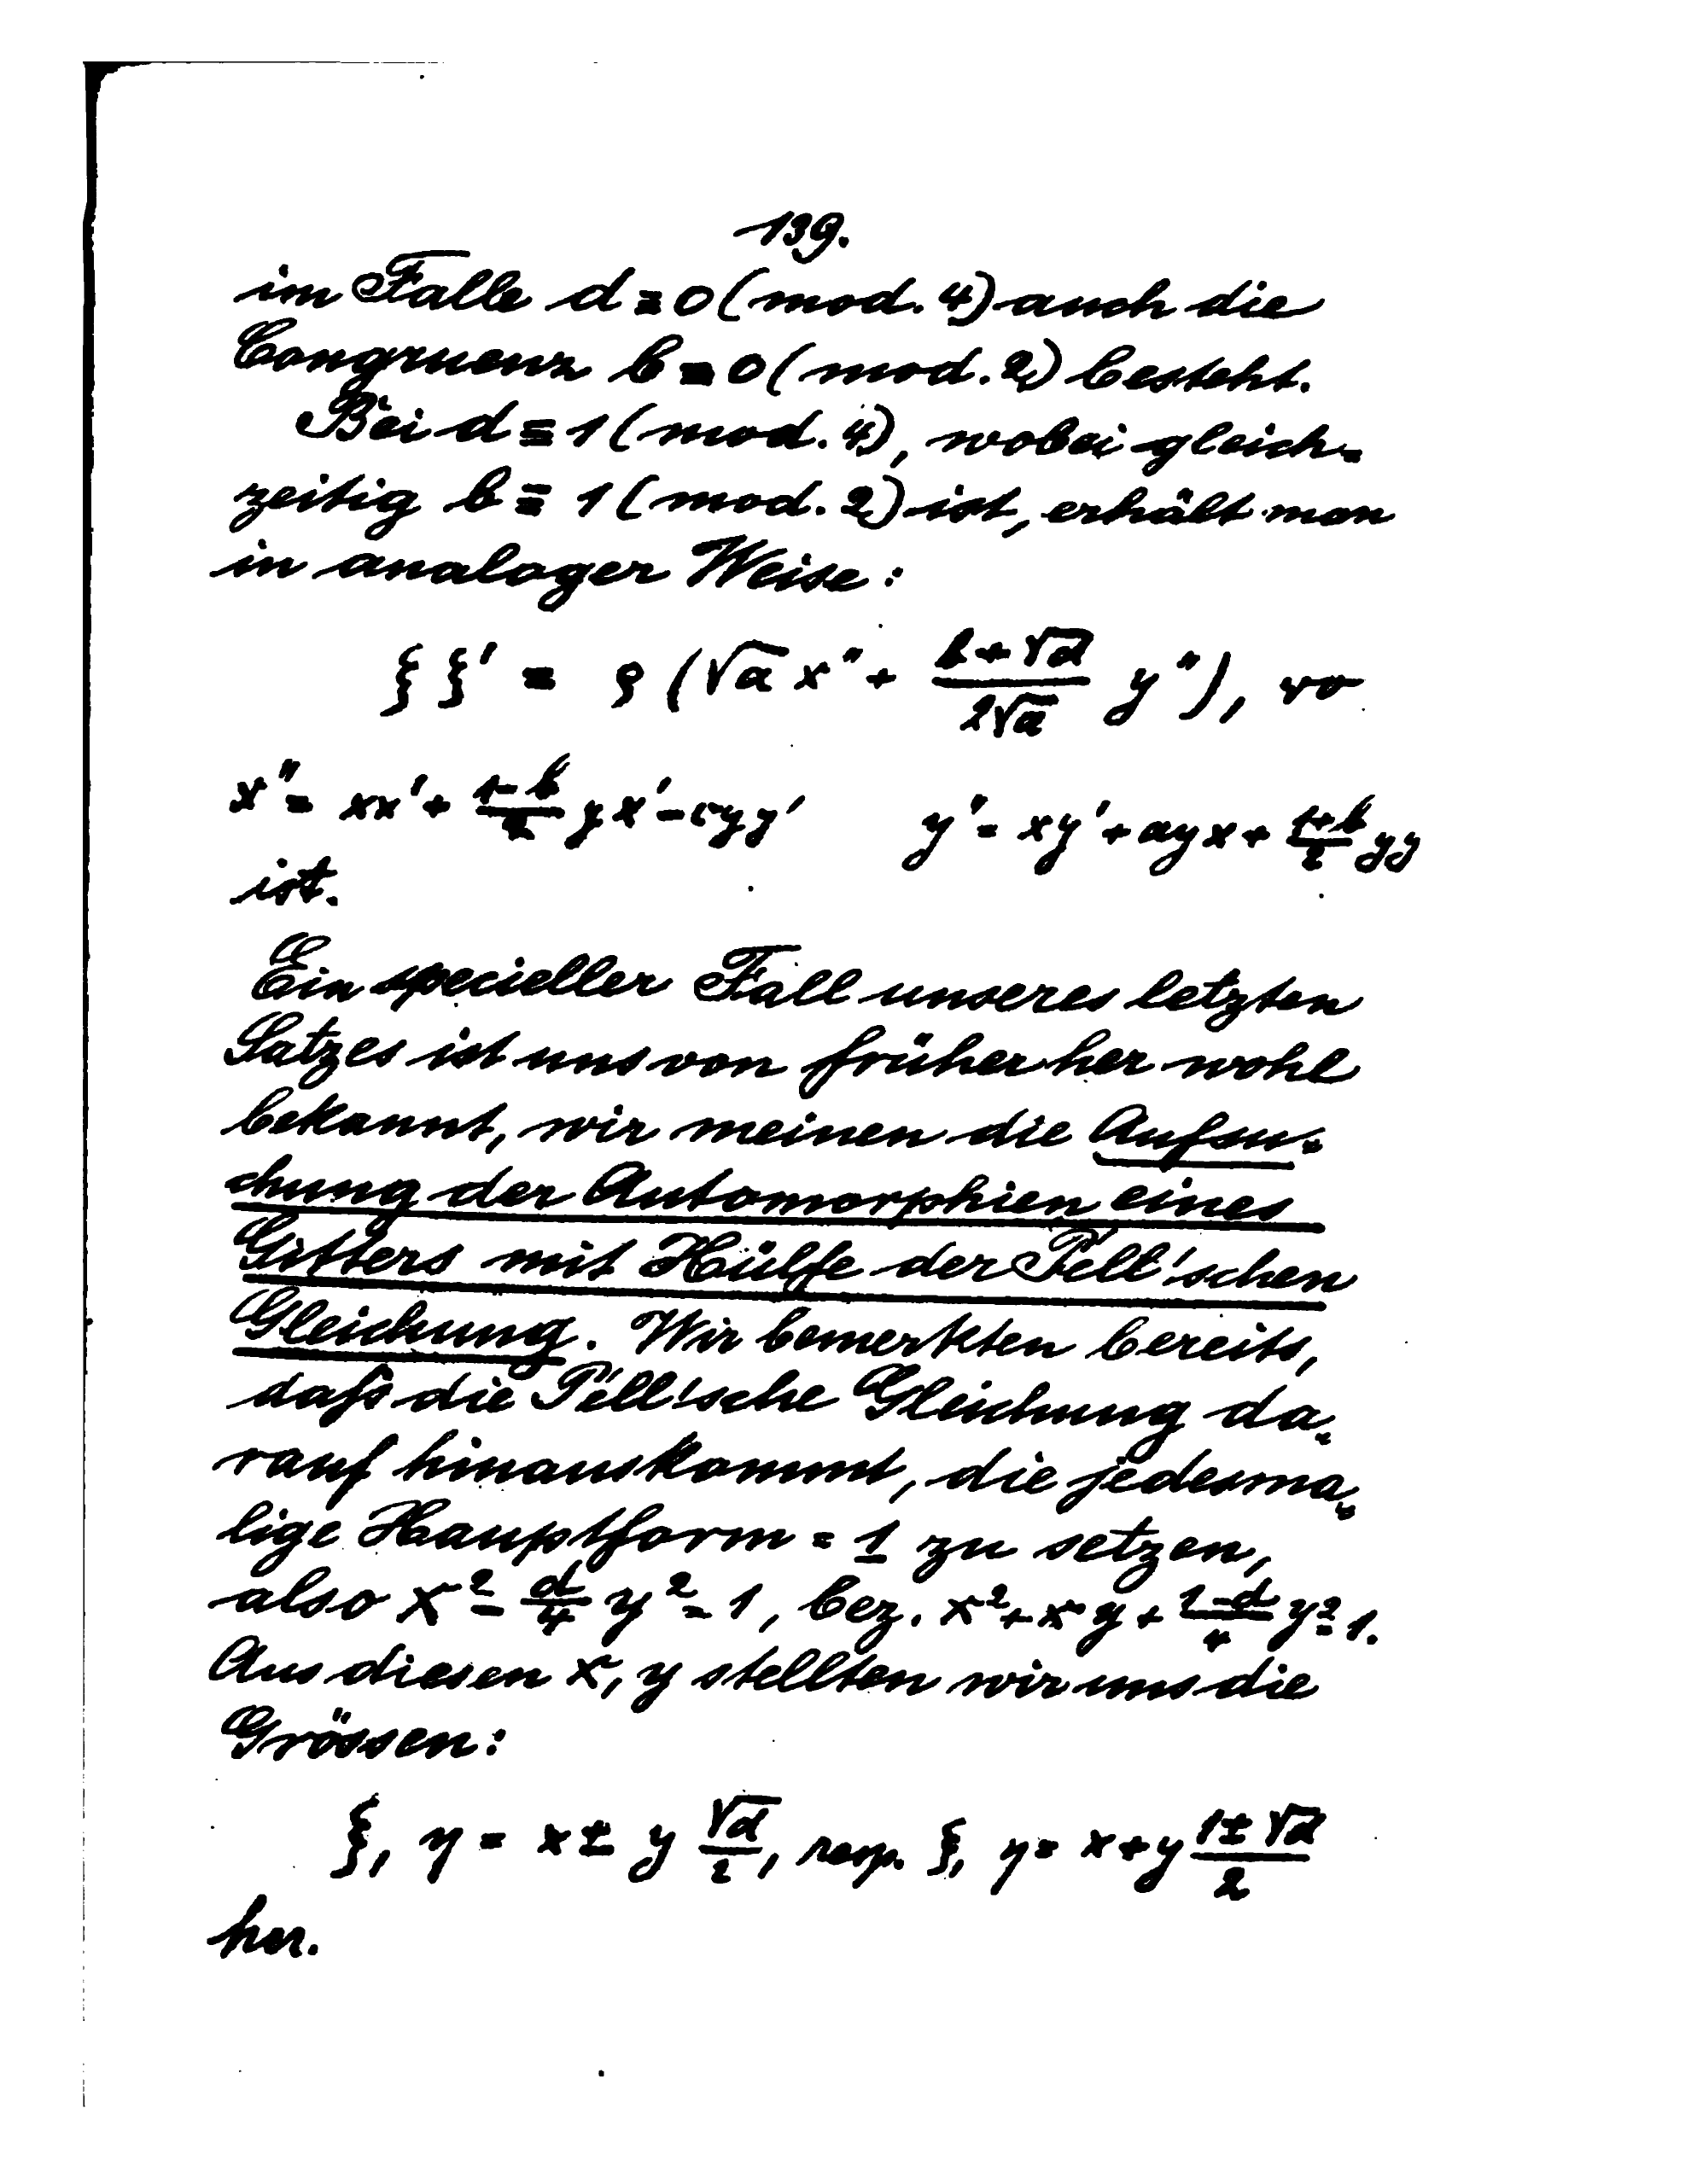 139.
im Falle d ≡ 0 (mod. 4) auch die
Congruenz b ≡ 0 (mod. 2) besteht.
Bei d ≡ 1 (mod. 4), wobei gleich-
zeitig b ≡ 1 (mod. 2) ist, erhält man
in analoger Weise:
ξ ξ' = ρ (√a x'' + (b + √d)/(2√a) y''), wo
x'' = xx' + (1-b)/2 yx' - cyy' y' = xy' + ayx + (1+b)/2 yy
ist.
Ein specieller Fall unseres letzten
Satzes ist uns von früher her wohl
bekannt, wir meinen die Aufsu-
chung der Automorphien eines
Gitters mit Hülfe der Pell'schen
Gleichung. Wir bemerkten bereits,
daß die Pell'sche Gleichung da-
rauf hinauskommt, die jedesma-
lige Hauptform = 1 zu setzen,
also x² - d/4 y² = 1, bez. x² + xy + (1-d)/4 y² = 1.
Aus diesen x, y stellten wir uns die
Grössen:
ξ, η = x ± y √d/2, resp. ξ, η = x + y (1 ± √d)/2
her.